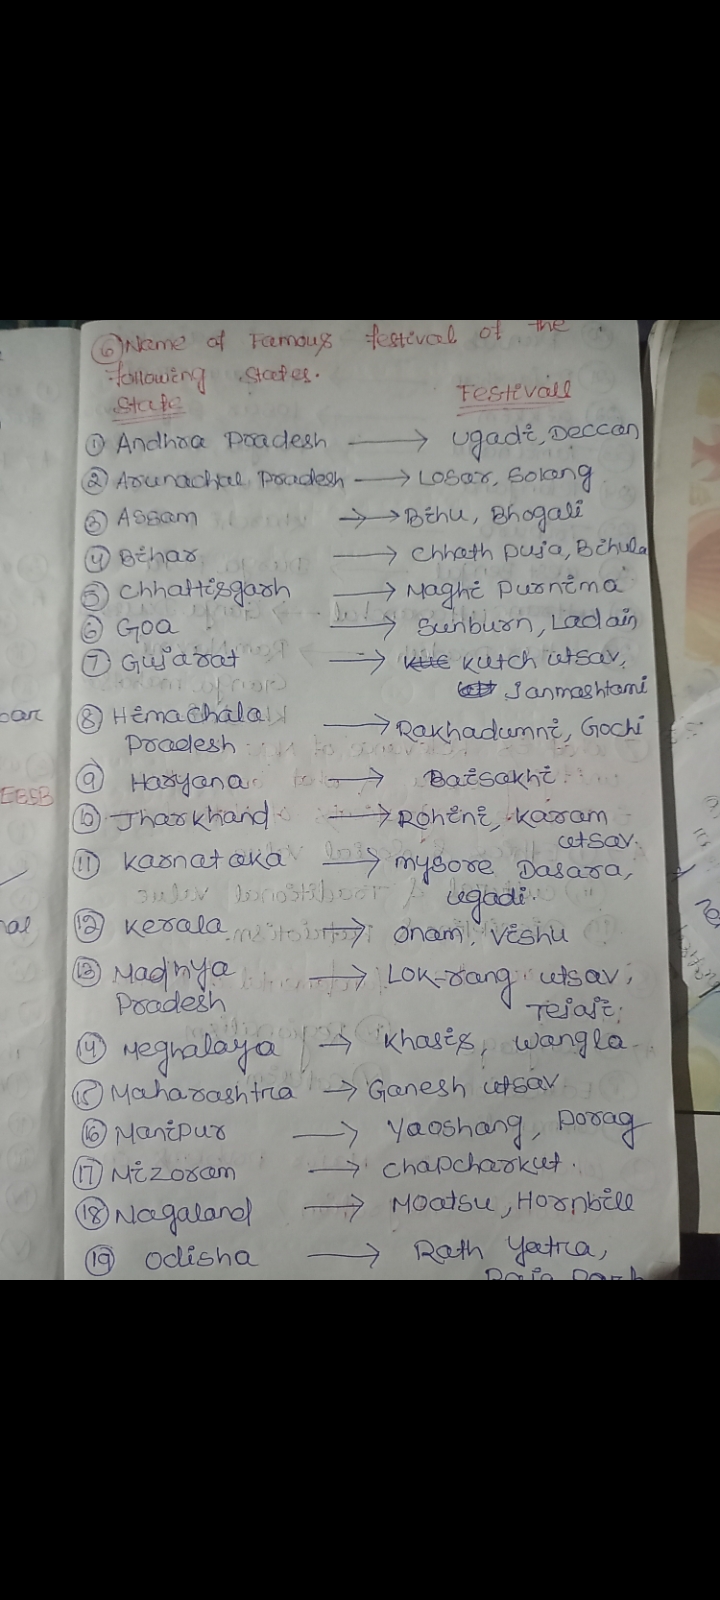 ⑥ Name of Famous festival of the
following states.
State Festivall
① Andhra Pradesh → Ugadi, Deccan
② Arunachal Pradesh → Losar, Solang
③ Assam →→ Bihu, Bhogali
④ Bihar → Chhath Puja, Bihula
⑤ Chhattisgarh → Maghi Purnima
⑥ Goa → Sunburn, Ladain
⑦ Gujarat → Kutch utsav,
Janmashtami
⑧ Himachala → Rakhadumni, Gochi
Pradesh
⑨ Haryana → Baisakhi
⑩ Jharkhand → Rohini, Karam
utsav.
⑪ Karnataka → mysore Dasara,
ugadi.
⑫ Kerala → Onam, Vishu
⑬ Madhya → Lok-rang utsav,
Pradesh Tejaji,
⑭ Meghalaya → Khasis, Wangla
⑮ Maharashtra → Ganesh utsav
⑯ Manipur → Yaoshang, Porag
⑰ Mizoram → Chapcharkut.
⑱ Nagaland → Moatsu, Hornbill
⑲ Odisha → Rath Yatra,
EBSB